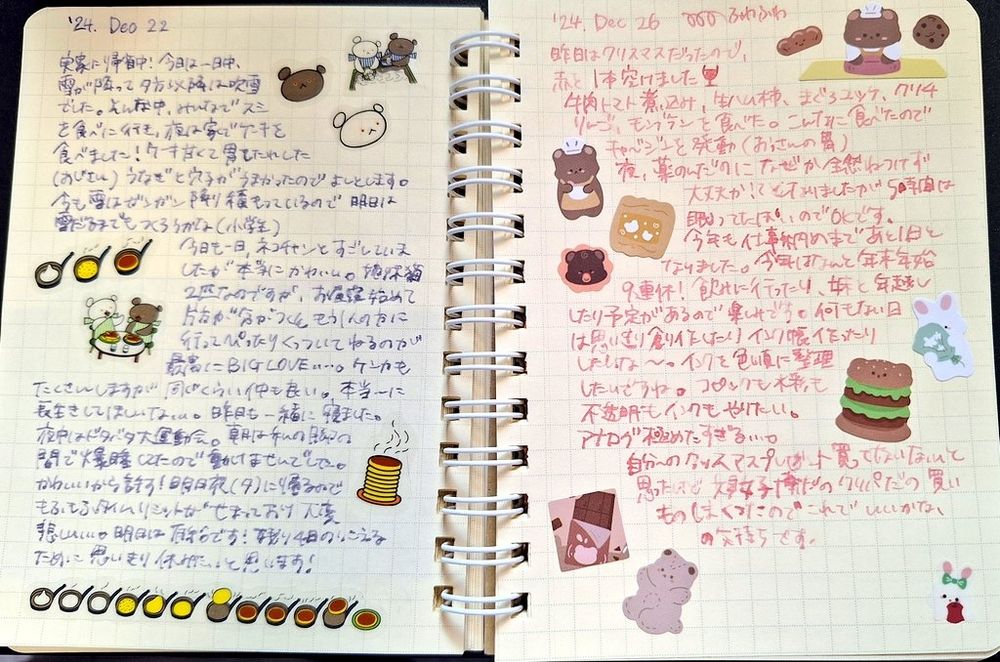 '24. Dec 22
実家に帰省中!今日は一日中、
雪が降って夕方以降は吹雪
でした。そんな中、みんなでスシ
を食べに行き、夜は家でケーキを
食べました!ケーキ甘くて胃もたれした
(おじさん)うなぎと穴子がうまかったのでよしとします。
今も雪はガンガン降り積もっているので明日は
雪だるまでもつくろうかな(小学生)
今日も一日、ネコチャンとすごしていま
したが本当にかわいい。
2匹なのですが、お昼寝始めて
片方が気がつくともう1人の方に
行ってぴったりくっついてねるのが
最高にBIG LOVE…。ケンカも
たくさんしますが同じくらい仲も良い。本当ーに
長生きしてほしいなぁ…。昨日も一緒に寝ました。
夜中はドタバタ大運動会。朝は私の脚の
間で爆睡してたので動けませんでした。
かわいいから許す!明日夜(夕)に帰るので
もふもふタイムリミットがせまっており大変
悲しいぃ…。明日は有給です!残り4日のりこえる
ために思いきり休みたいと思います!
'24. Dec 26 ふわふわ
昨日はクリスマスだったので、
赤と1本空けました
牛肉トマト煮込み、生ハム柿、まぐろユッケ、クリチ
りんご、モンブランを食べた。こんなに食べたので
キャベジンを発動(おっさんの胃)
夜、薬のんだのになぜか全然ねつけず
大丈夫か!?と思われましたが5時間は
眠ってたっぽいのでOKです。
今年も仕事納めまであと1日と
なりました。今年はなんと年末年始
9連休!飲みに行ったり、妹と年越し
したり予定があるので楽しみです。何もない日
は思いきり創作したりインク帳作ったり
したいな〜。インクを色順に整理
したいですね。コピックも水彩も
不透明もインクもやりたい。
アナログ極めたすぎる…。
自分へのクリスマスプレゼント買ってないな、と
思ったけど
ものしまくったのでこれでいいかな、
の気持ちです。